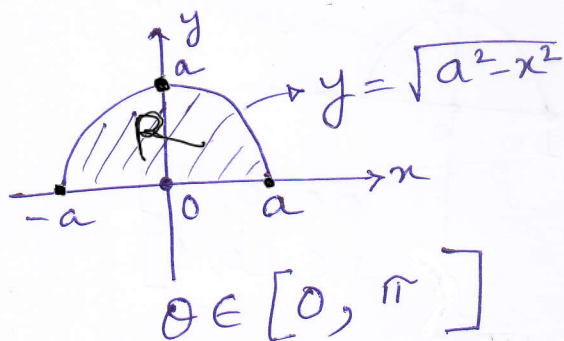 y
a
y = √a²-x²
R
x
-a
0
a
θ ∈ [0, π]